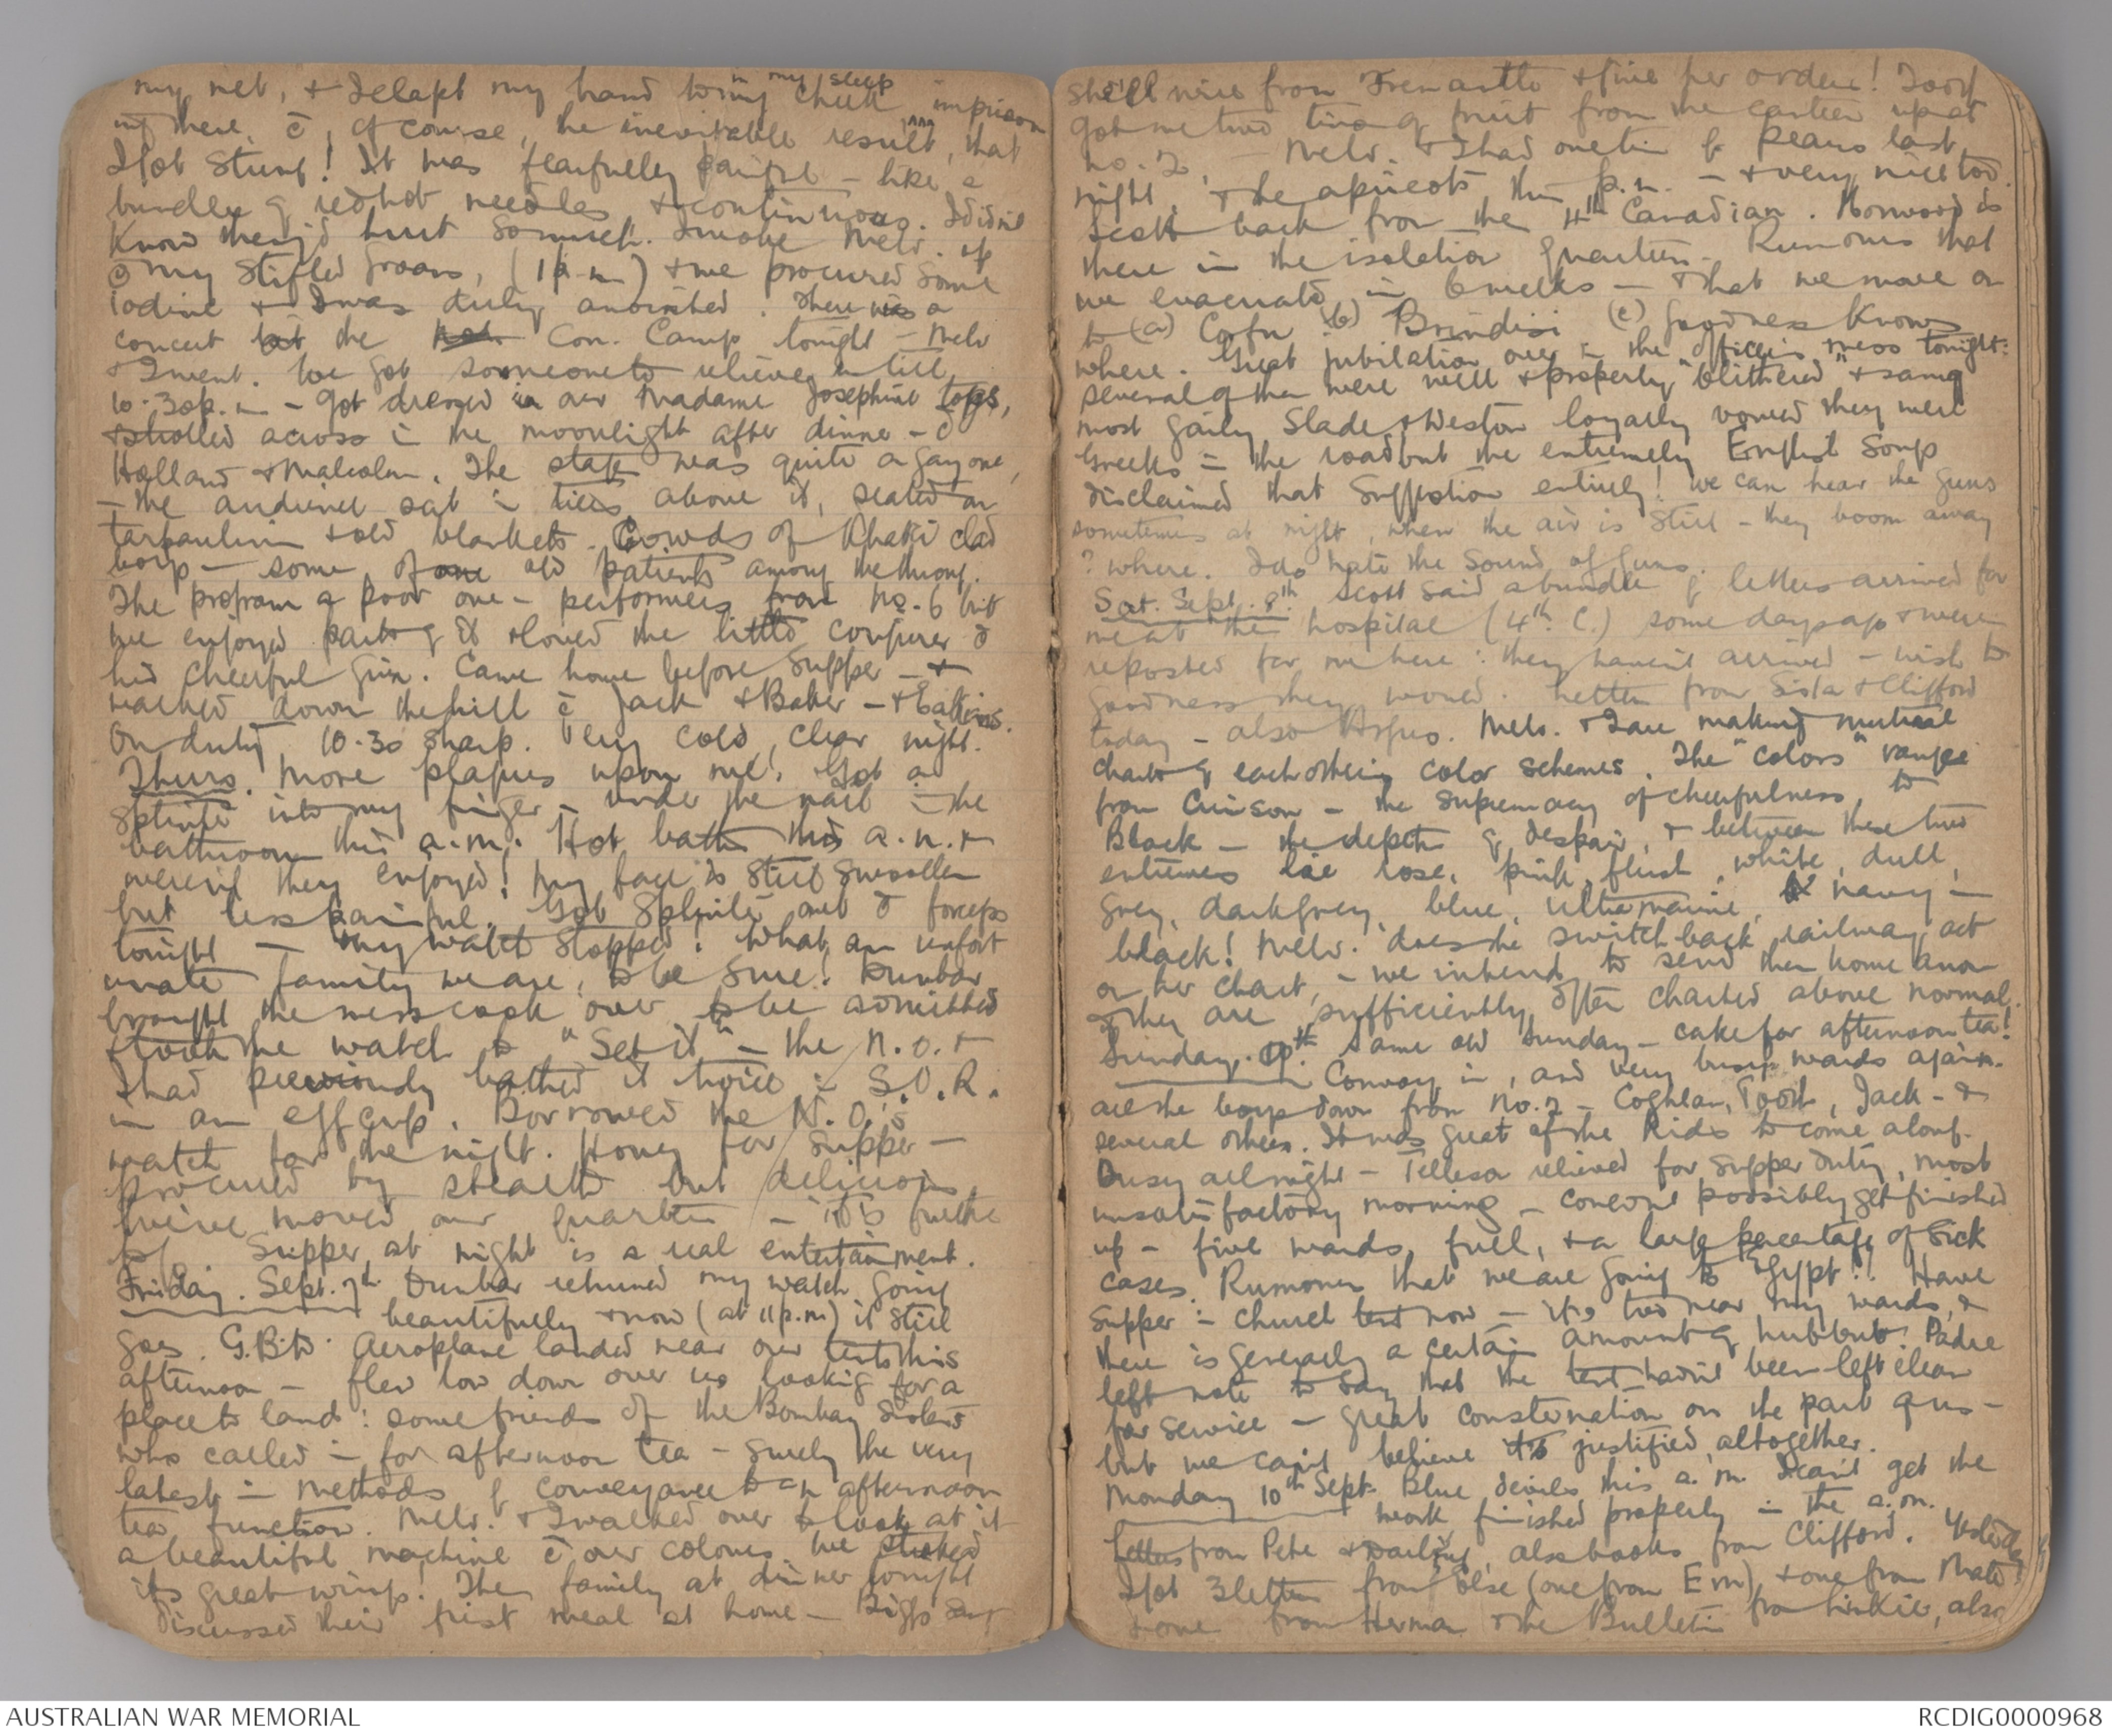 my net, & I clapt my hand to my cheek in my sleep imprison
ing there, c̄, of course, the inevitable result, that
I got stung! It was fearfully painful – like a
bundle of redhot needles & continuous. I didn't
know they'd hurt so much. I woke Melv. up
c̄ my stifled groans, (1 p.m) & we procured some
iodine & I was duly anointed. There was a
concert at the Con. Camp tonight – Melv
& I went. We got someone to relieve us till
10.30 p.m – got dressed in our Madame Josephine togs,
& strolled across in the moonlight after dinner – c̄
Holland & Malcolm. The stage was quite a gay one,
– the audience sat in tiers above it, seated on
tarpaulin & old blankets. Crowds of Khaki clad
boys – some of our old patients among the throng.
The program a poor one – performers from No. 6 but
we enjoyed parts of it & loved the little conjurer c̄
his cheerful grin. Came home before supper – &
walked down the hill c̄ Jack & Baker – & Eakins.
On duty, 10.30 sharp. Very cold, clear night.
Thurs. More plagues upon me! Got a
splinter into my finger – under the nail in the
bathroom this a.m. Hot baths this a.m. &
merrily they enjoyed! My face is still swollen
but less painful. Got splinter out c̄ forceps
tonight – & my watch stopped! What an unfort
unate family we are, to be sure! Dunbar
brought the mess cook over to be admitted
& took the watch to "Set it" – the N.O. &
I had previously bathed it twice in S.V.R.
in an egg cup. Borrowed the N.O.'s
watch for the night. Honey for supper –
procured by stealth but delicious
We've moved our quarters – it's further
off. Supper at night is a real entertainment.
Friday. Sept. 7th. Dunbar returned my watch going
beautifully & now (at 11 p.m) it still
goes. Aeroplane landed near our tents this
afternoon – flew low down over us looking for a
place to land: some friends of the Bombay Sisters
who called in for afternoon tea – surely the very
latest in methods of conveyance to an afternoon
tea function. Melv. & I walked over to look at it
a beautiful machine c̄ our colours. We stroked
its great wings! The family at dinner tonight
discussed their first meal at home –
she'll wire from Fremantle & give her orders! Toort
got me two tins of fruit from the canteen up at
no. 2. – Melv. & I had one tin of pears last
night, & the apricots this p.m. – & very nice too.
Scott back from the 4th Canadian. Norwood is
there in the isolation quarters. Rumours that
we evacuate in 6 weeks – & that we move on
to (a) Corfu (b) Brindisi (c) goodness knows
where. Great jubilation over in the officers mess tonight:
several of them were well & properly "blithered" & sang
most gaily. Slade & Weston loyally vowed they were
Greeks in the road but the extremely English songs
disclaimed that suggestion entirely! We can hear the guns
sometimes at night, when the air is still – they boom away
? where. I do hate the sound of guns.
Sat. Sept. 8th. Scott said a bundle of letters arrived for
me at their hospital (4th. C.) some days ago & were
reposted for me here: they haven't arrived – wish to
goodness they would. Letters from Sista & Clifford
today – also Argus. Melv. & I are making mutual
charts of each others color schemes. The "colors" range
from Crimson – the supremacy of cheerfulness, to
Black – the depth of despair, & between these two
extremes lie rose, pink, flush, white, dull,
grey, dark grey, blue, ultramarine, navy –
black! Melv. does the switchback railway act
on her chart, – we intend to send them home anon
if they are sufficiently often charted above normal.
Sunday. 9th. Same old Sunday – cake for afternoon tea!
Convoy in, and very busy wards again.
All the boys down from No. 2 – Coghlan, Toort, Jack – &
several others. It was great of the Kids to come along.
Busy all night – Tellesa relieved for supper duty, most
unsatisfactory morning – coudn't possibly get finished
up – five wards, full, & a large percentage of sick
cases. Rumour that we are going to Egypt!! Have
supper in church tent now – it's too near my wards, &
there is generally a certain amount of hubbub! Padre
left note to say that the tent hadn't been left clean
for service – great consternation on the part of us –
but we can't believe it's justified, altogether.
Monday 10th Sept. Blue devils this a.m. I can't get the
work finished properly in the a.m.
Letters from Pete & Darling, also books from Clifford. Yesterday
I got 3 letters from Else (one from Em), & one from Mater
& one from Herman & the Bulletin from Linkie, also
AUSTRALIAN WAR MEMORIAL
RCDIG0000968